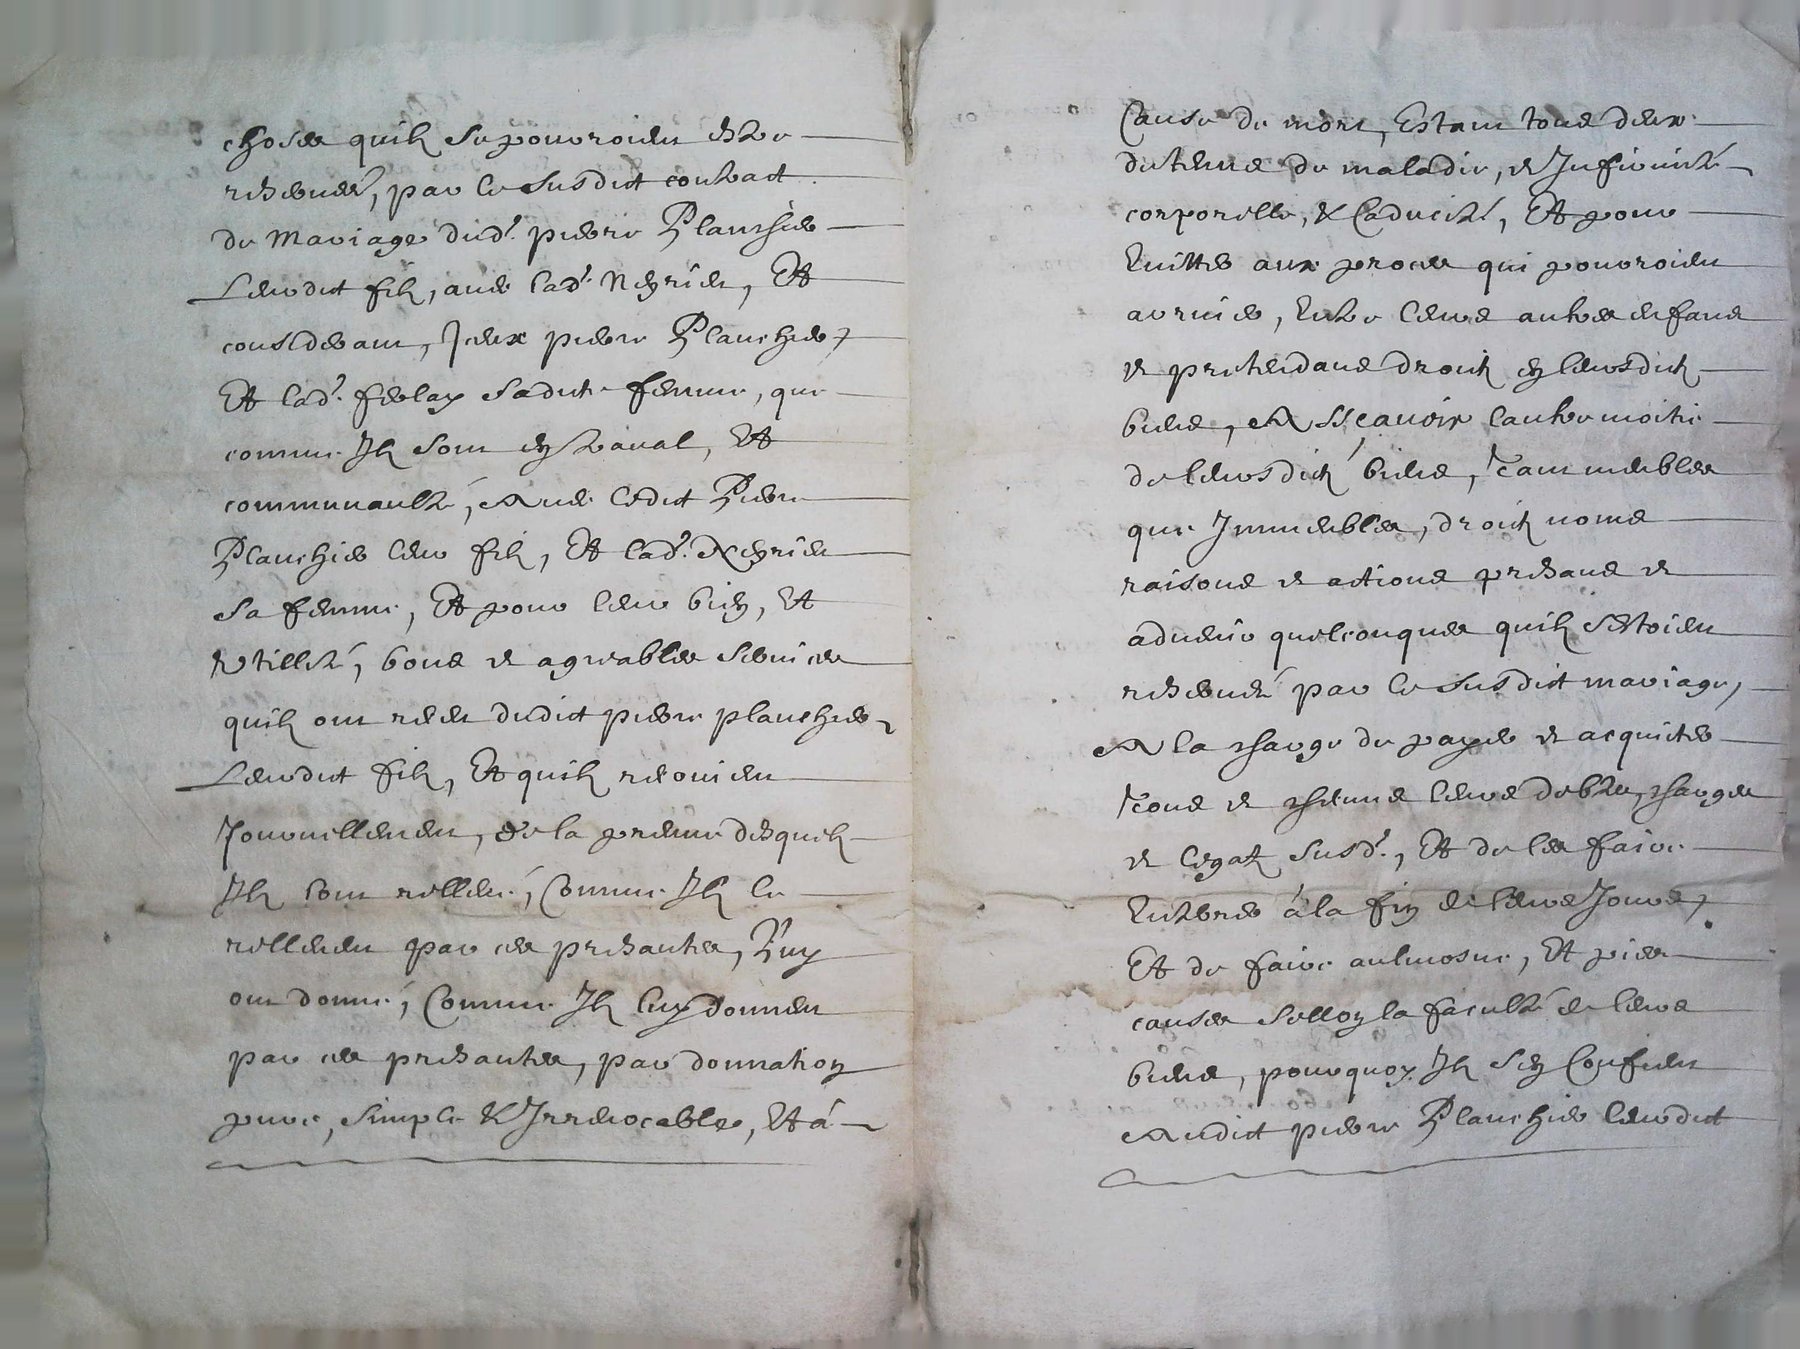 choses quilz se pouvroient estre
reservées, par le susdict contract
de Mariage dud.t pierre Planchier
Leurdict filz, avec lad.te Neyrier, Et
considerant, Iceux pierre Planchier,
Et lad.te sadicte femme, que
comme Ilz sont en travail, Et
communaulté, Avec ledict Pierre
Planchier leur filz, Et lad.te Neyrier
sa femme, Et pour leur bien, Et
utillité, bons et agreables services
quilz ont receu dudict pierre planchier
Leurdict filz, Et quilz recoivent
Journellement, de la preuve desquelz
Ilz lont rellevé, Comme Ilz le
rellevent par ces presantes, Luy
ont donné, Comme Ilz luy donnent
par ces presantes, par donnation
pure, simple & Irrevocable, Et à
Cause de mort, Estant tous deux
detenus de maladie, et Infirmité
corporelle, & Caducité, Et pour
Eviter aux proces qui pouvroient
arriver, Entre leurs autres enfans
et pretendans droictz en leursdictz
biens, A Scavoir lautre moitié
de leursdictz biens, Tant meubles
que Immeubles, droictz noms
raisons et actions presans et
advenir quelconques quilz sestoient
reservés par le susdict mariage,
A la charge de payer et acquicter
Tous et chescuns leurs debtes, charges
et legatz susd.ts, Et de les faire
Enterrer à la fin de leurs Jours,
Et de faire aulmosne, Et pies
causes sellon la faculté de leurs
biens, pourquoy Ilz sen Confient
Audict pierre Planchier leurdict